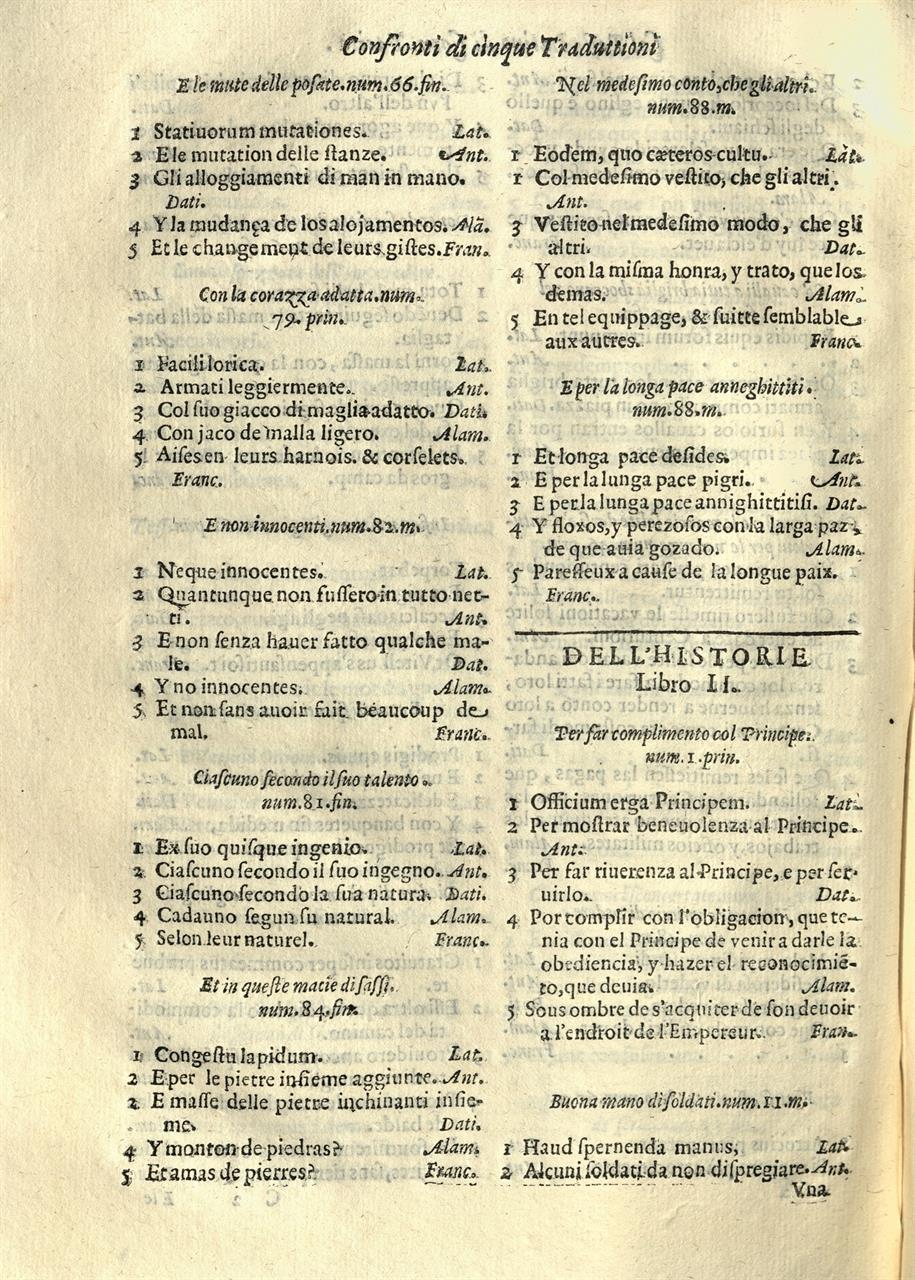 Confronti di cinque Traduttioni
E le mute delle posate. num. 66. fin.
1 Statiuorum mutationes. Lat.
2 E le mutation delle ſtanze. Ant.
3 Gli alloggiamenti di man in mano.
Dati.
4 Y la mudança de los alojamentos. Alã.
5 Et le changement de leurs giſtes. Fran.
Con la corazza adatta. num.
79. prin.
1 Facili lorica. Lat.
2 Armati leggiermente. Ant.
3 Col ſuo giacco di maglia adatto. Dati.
4 Con jaco de malla ligero. Alam.
5 Aiſes en leurs harnois. & corſelets.
Franc.
E non innocenti. num. 82. m.
1 Neque innocentes. Lat.
2 Quantunque non fuſſero in tutto net-
ti. Ant.
3 E non ſenza hauer fatto qualche ma-
le. Dat.
4 Y no innocentes. Alam.
5 Et non ſans auoir fait beaucoup de
mal. Franc.
Ciaſcuno ſecondo il ſuo talento.
num. 81. fin.
1 Ex ſuo quiſque ingenio. Lat.
2 Ciaſcuno ſecondo il ſuo ingegno. Ant.
3 Ciaſcuno ſecondo la ſua natura. Dati.
4 Cadauno ſegun ſu natural. Alam.
5 Selon leur naturel. Franc.
Et in queſte macie di ſaſſi.
num. 84. fin.
1 Congeſtu lapidum. Lat.
2 E per le pietre inſieme aggiunte. Ant.
2 E maſſe delle pietre inchinanti inſie-
me. Dati.
4 Y monton de piedras? Alam.
5 Et amas de pierres? Franc.
Nel medeſimo conto, che gli altri.
num. 88. m.
1 Eodem, quo cæteros cultu. Lat.
1 Col medeſimo veſtito, che gli altri.
Ant.
3 Veſtito nel medeſimo modo, che gli
altri. Dat.
4 Y con la miſma honra, y trato, que los
demas. Alam.
5 En tel equippage, & ſuitte ſemblable
aux autres. Franc.
E per la longa pace anneghittiti.
num. 88. m.
1 Et longa pace deſides. Lat.
2 E per la lunga pace pigri. Ant.
3 E per la lunga pace annighittitiſi. Dat.
4 Y floxos, y perezoſos con la larga paz,
de que auia gozado. Alam.
5 Pareſſeux a cauſe de la longue paix.
Franc.
DELL'HISTORIE
Libro II.
Per far complimento col Principe.
num. 1. prin.
1 Officium erga Principem. Lat.
2 Per moſtrar beneuolenza al Principe.
Ant.
3 Per far riuerenza al Principe, e per ſer-
uirlo. Dat.
4 Por complir con l'obligacion, que te-
nia con el Principe de venir a darle la
obediencia, y hazer el reconocimiẽ-
to, que deuia. Alam.
5 Sous ombre de s'acquiter de ſon deuoir
a l'endroit de l'Empereur. Fran.
Buona mano di ſoldati. num. 11. m.
1 Haud ſpernenda manus, Lat.
2 Alcuni ſoldati da non diſpregiare. Ant.
Vna